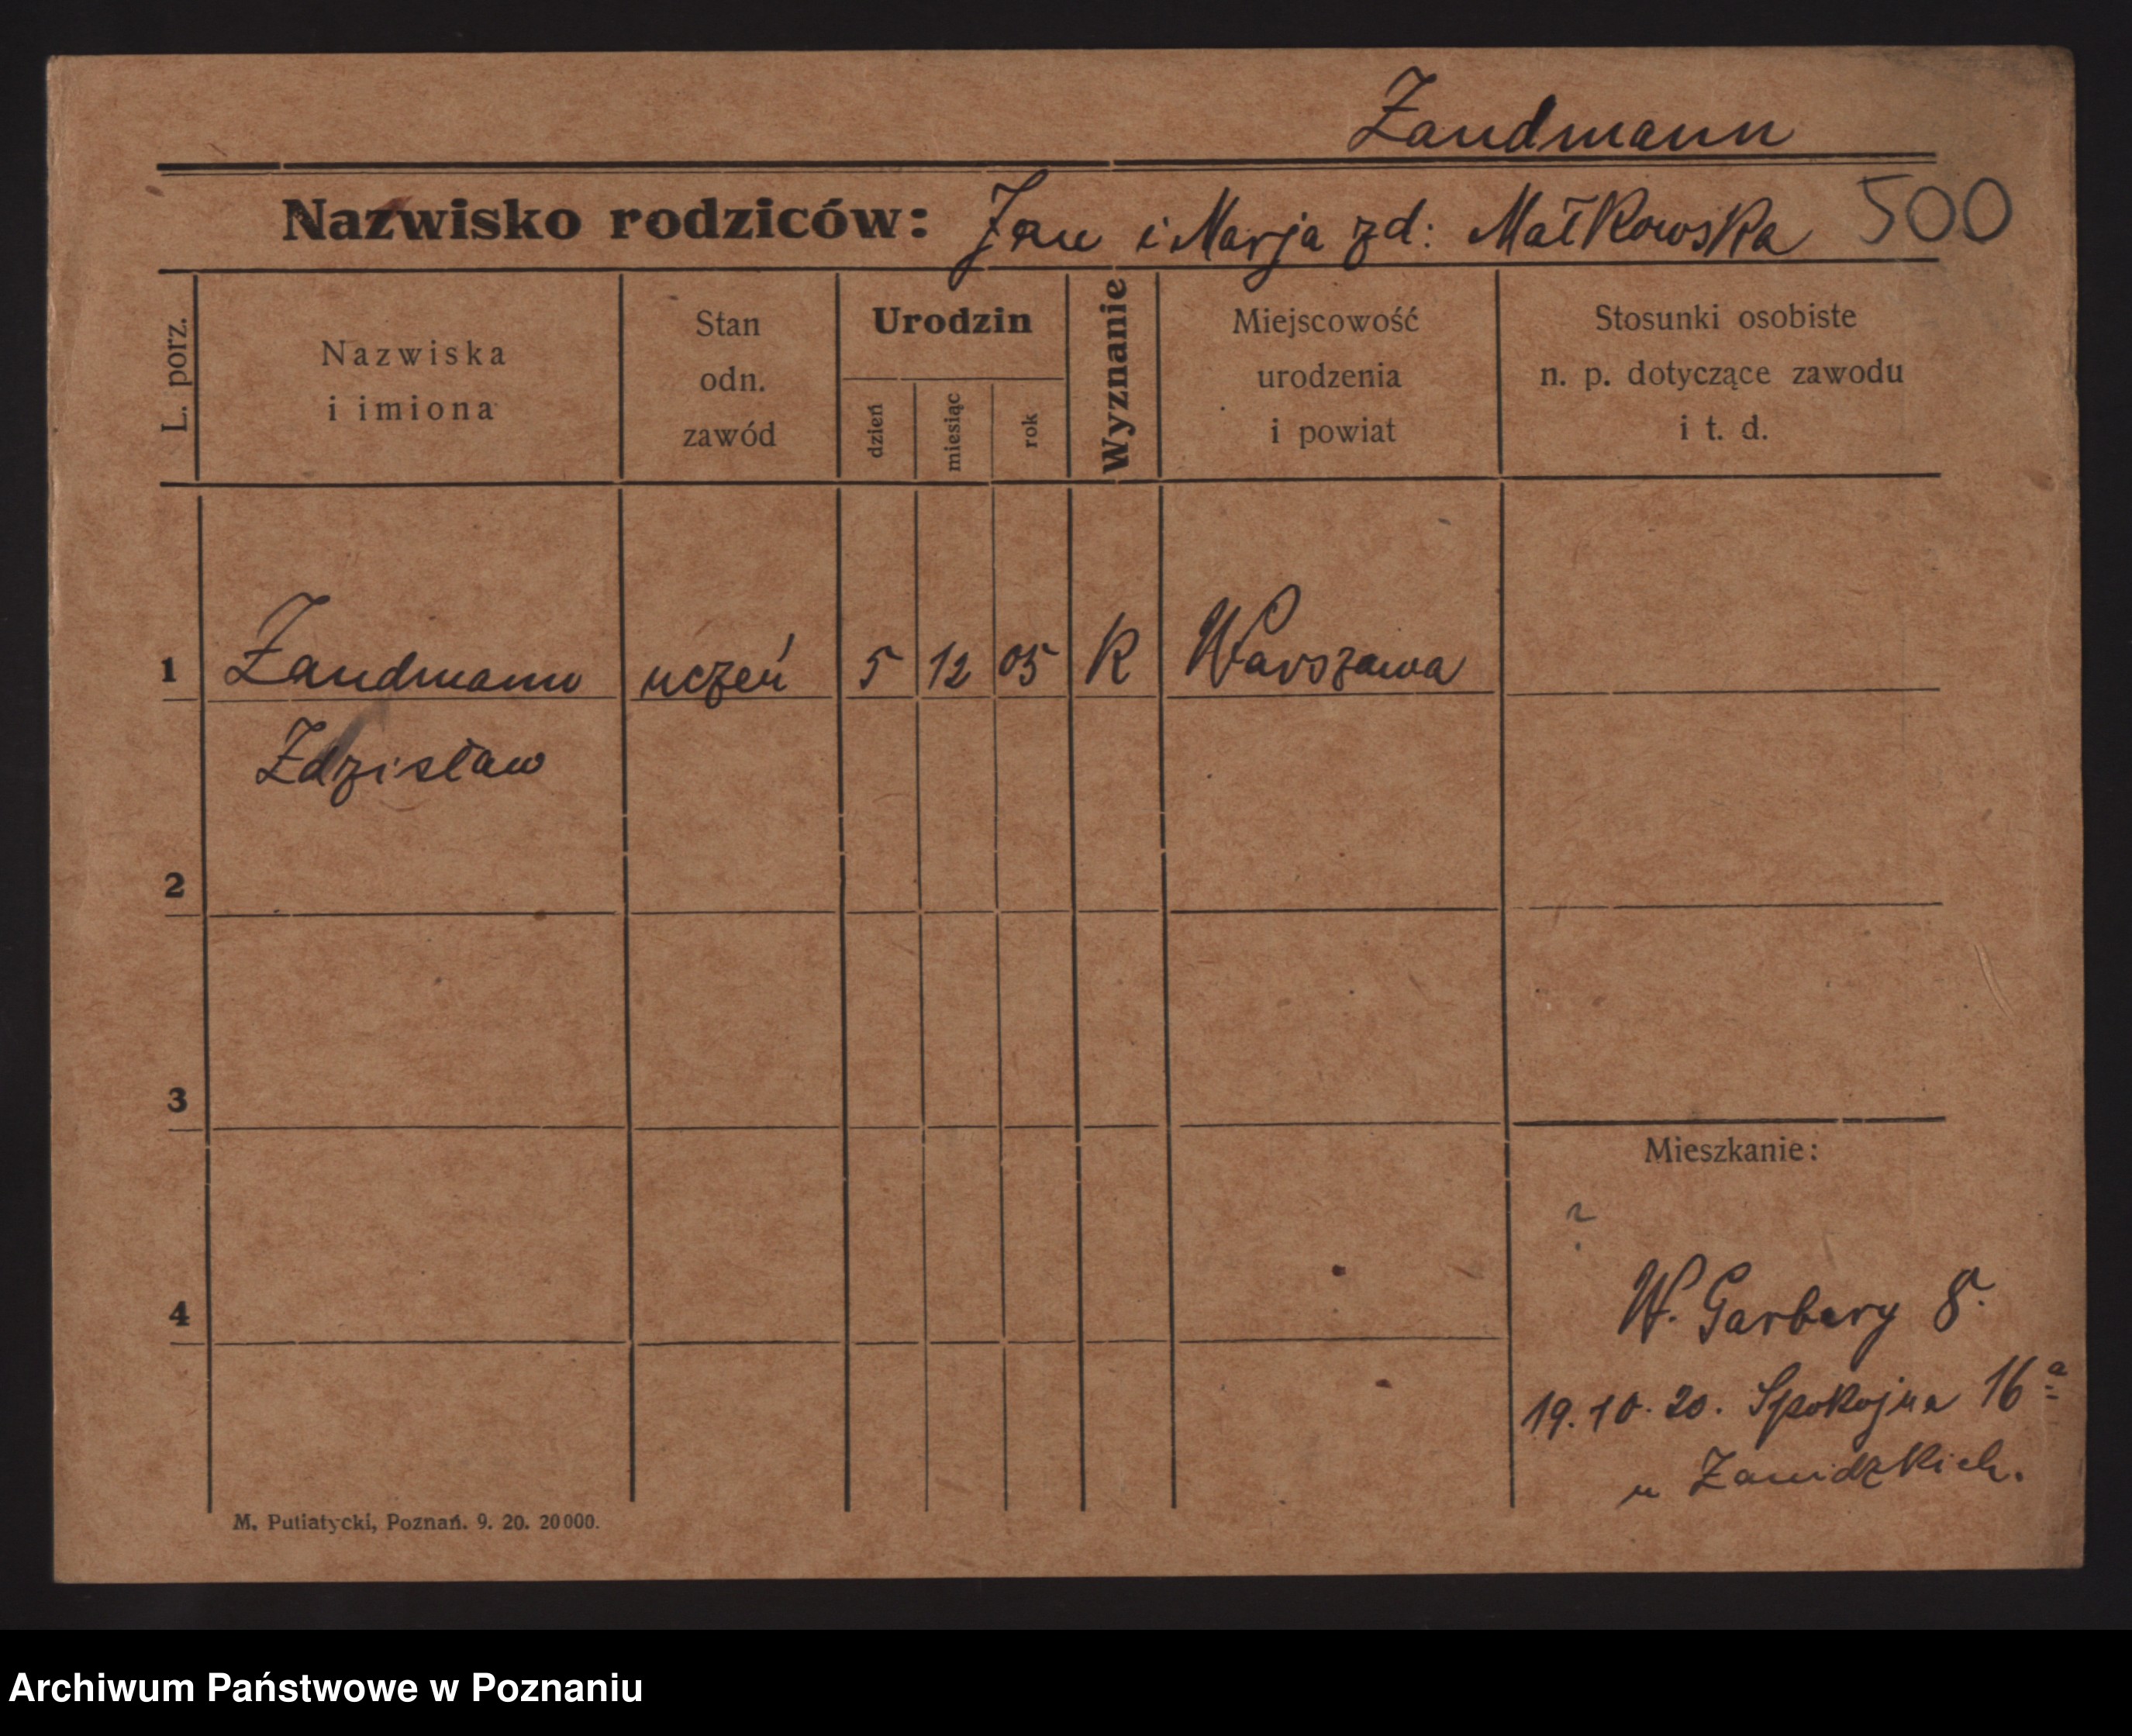 Zandmann
Nazwisko rodziców: Jan i Marja zd: Małkowska 500
L. porz.
Nazwiska
i imiona
Stan
odn.
zawód
Urodzin
dzień
miesiąc
rok
Wyznanie
Miejscowość
urodzenia
i powiat
Stosunki osobiste
n. p. dotyczące zawodu
i t. d.
1 Zandmann uczeń 5 12 05 K Warszawa
Zdzisław
2
3
Mieszkanie:
?
W. Garbary 8.
4
19.10.20. Spokojna 16a
u
M. Putiatycki, Poznań. 9. 20. 20000.
Archiwum Państwowe w Poznaniu